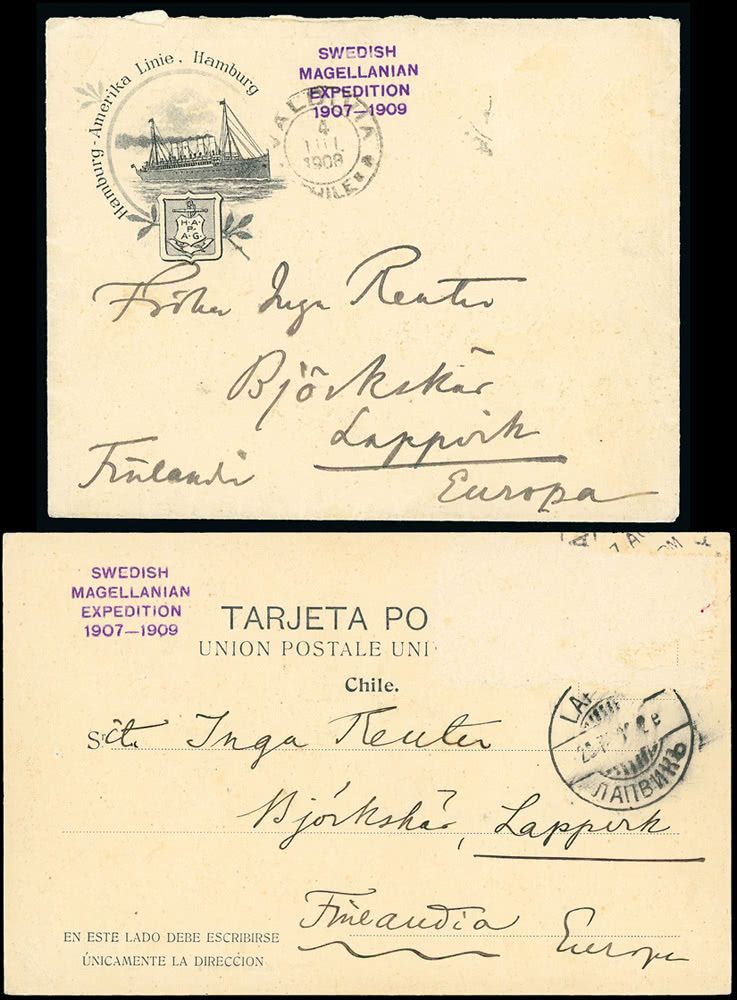 Hamburg-Amerika Linie. Hamburg
H.A.
P.
A.G.
SWEDISH
MAGELLANIAN
EXPEDITION
1907—1909
VALDIVIA
4
1908
CHILE
Fröken Inga Reuter
Björkskär
Lappvik
Finlandia
Europa
SWEDISH
MAGELLANIAN
EXPEDITION
1907—1909
TARJETA PO
UNION POSTALE UNI
Chile.
Srcit. Inga Reuter
Björkskär, Lappvik
Finlandia
Europa
ЛАПВИКЪ
EN ESTE LADO DEBE ESCRIBIRSE
ÚNICAMENTE LA DIRECCION